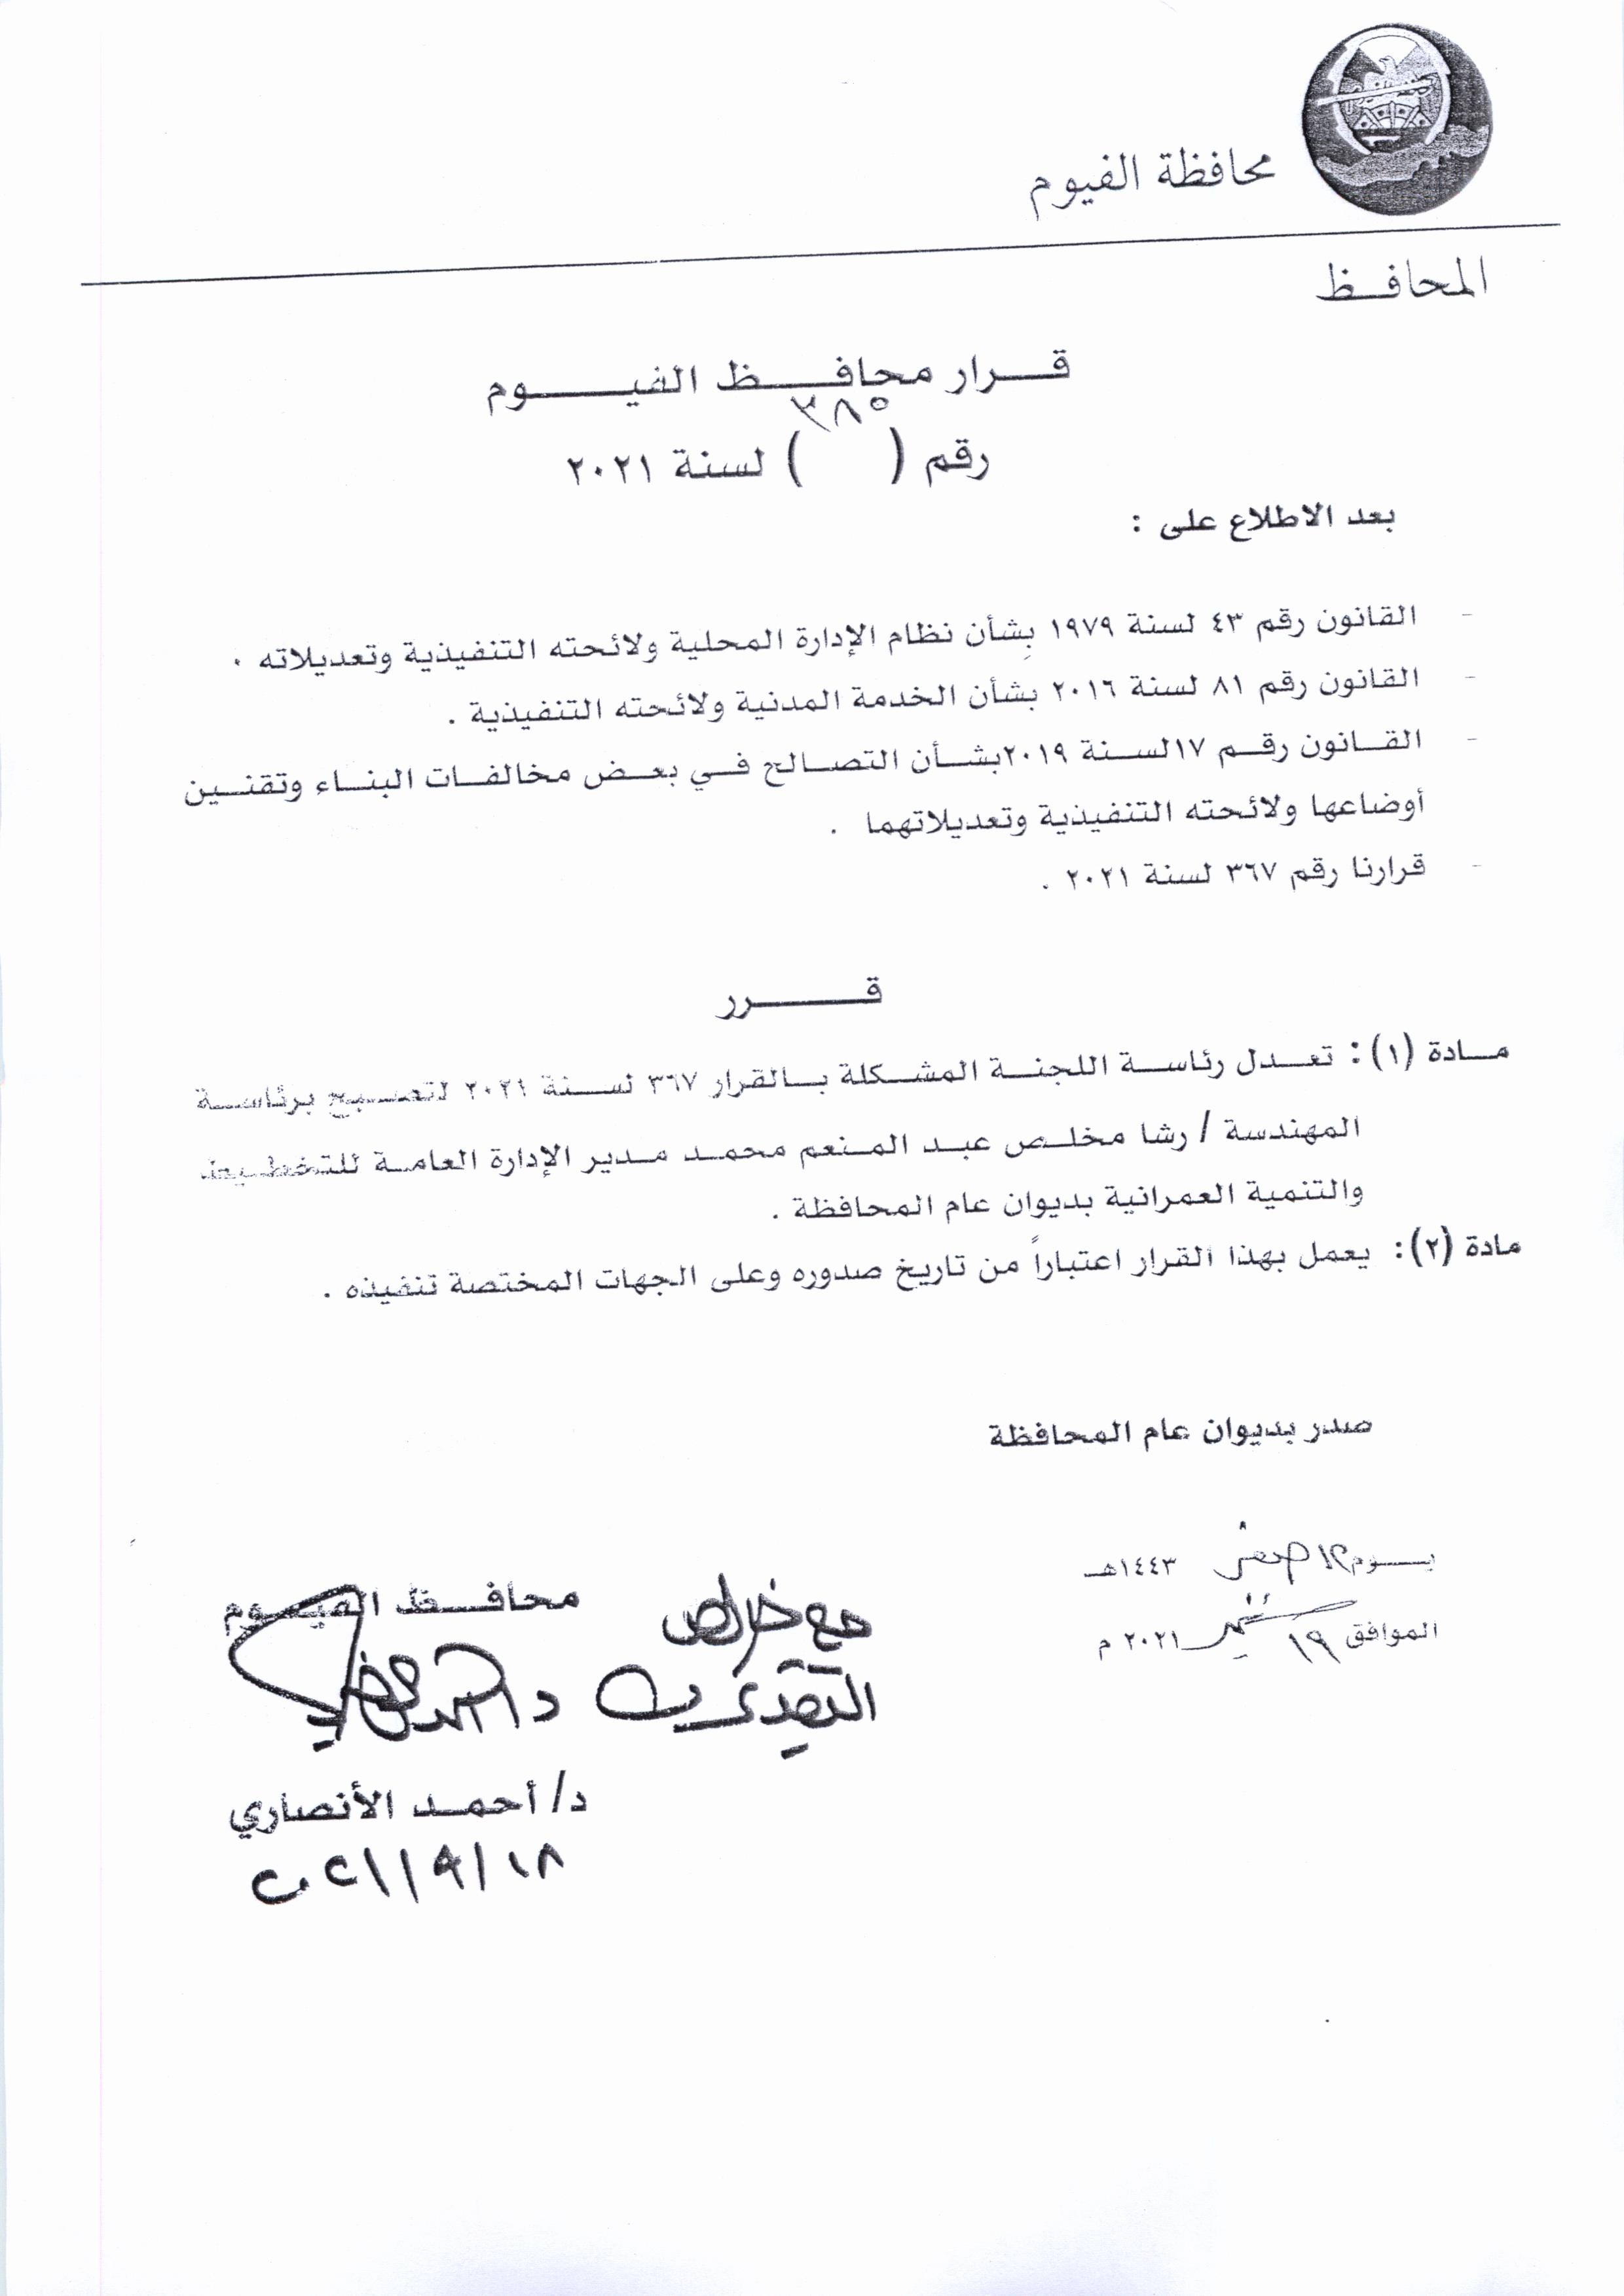 محافظة الفيوم
المحافظ
قرار محافظ الفيوم
٣٨٥
رقم ( ) لسنة ٢٠٢١
بعد الاطلاع على :
- القانون رقم ٤٣ لسنة ١٩٧٩ بشأن نظام الإدارة المحلية ولائحته التنفيذية وتعديلاته .
- القانون رقم ٨١ لسنة ٢٠١٦ بشأن الخدمة المدنية ولائحته التنفيذية .
- القانون رقم ١٧لسنة ٢٠١٩بشأن التصالح في بعض مخالفات البناء وتقنين
أوضاعها ولائحته التنفيذية وتعديلاتهما .
- قرارنا رقم ٣٦٧ لسنة ٢٠٢١ .
قرر
مادة (١) : تعدل رئاسة اللجنة المشكلة بالقرار ٣٦٧ لسنة ٢٠٢١ لتصبح برئاسة
المهندسة / رشا مخلص عبد المنعم محمد مدير الإدارة العامة للتخطيط
والتنمية العمرانية بديوان عام المحافظة .
مادة (٢) : يعمل بهذا القرار اعتباراً من تاريخ صدوره وعلى الجهات المختصة تنفيذه .
صدر بديوان عام المحافظة
يوم ١٢ صفر ١٤٤٣هـ
الموافق ١٩ سبتمبر ٢٠٢١ م
محافظ الفيوم
مع خالص
التقدير
د/ أحمد الأنصاري
٢٠٢١/٩/١٨